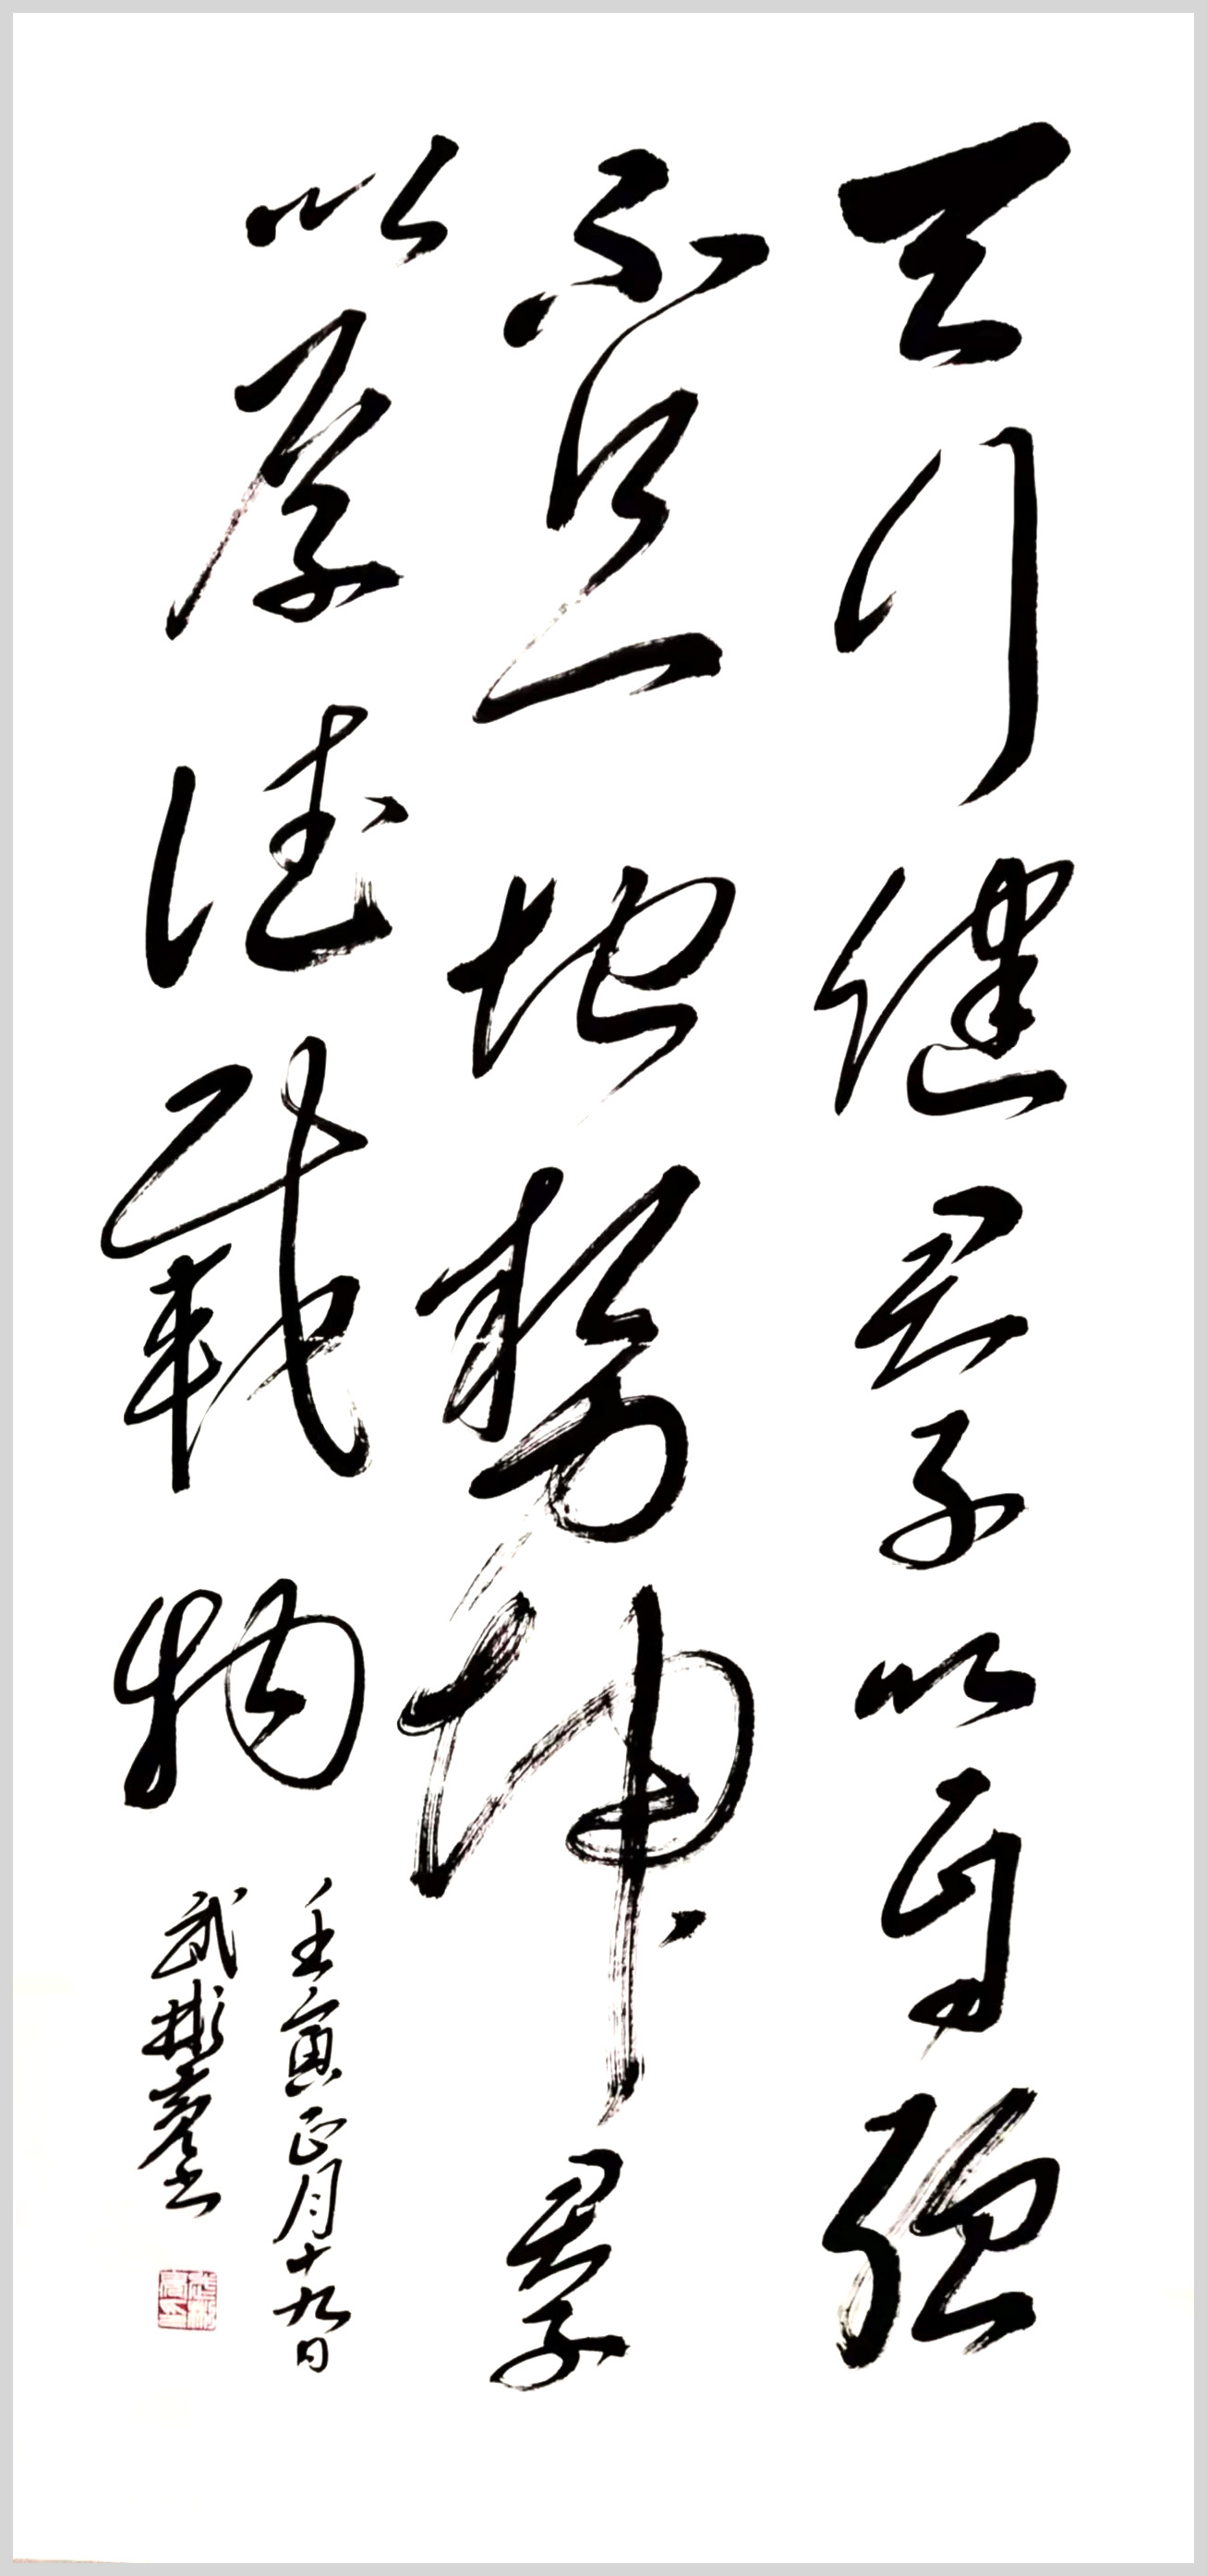 天行健君子以自强
不息地势坤君子
以厚德载物
壬寅正月十九日
武彬